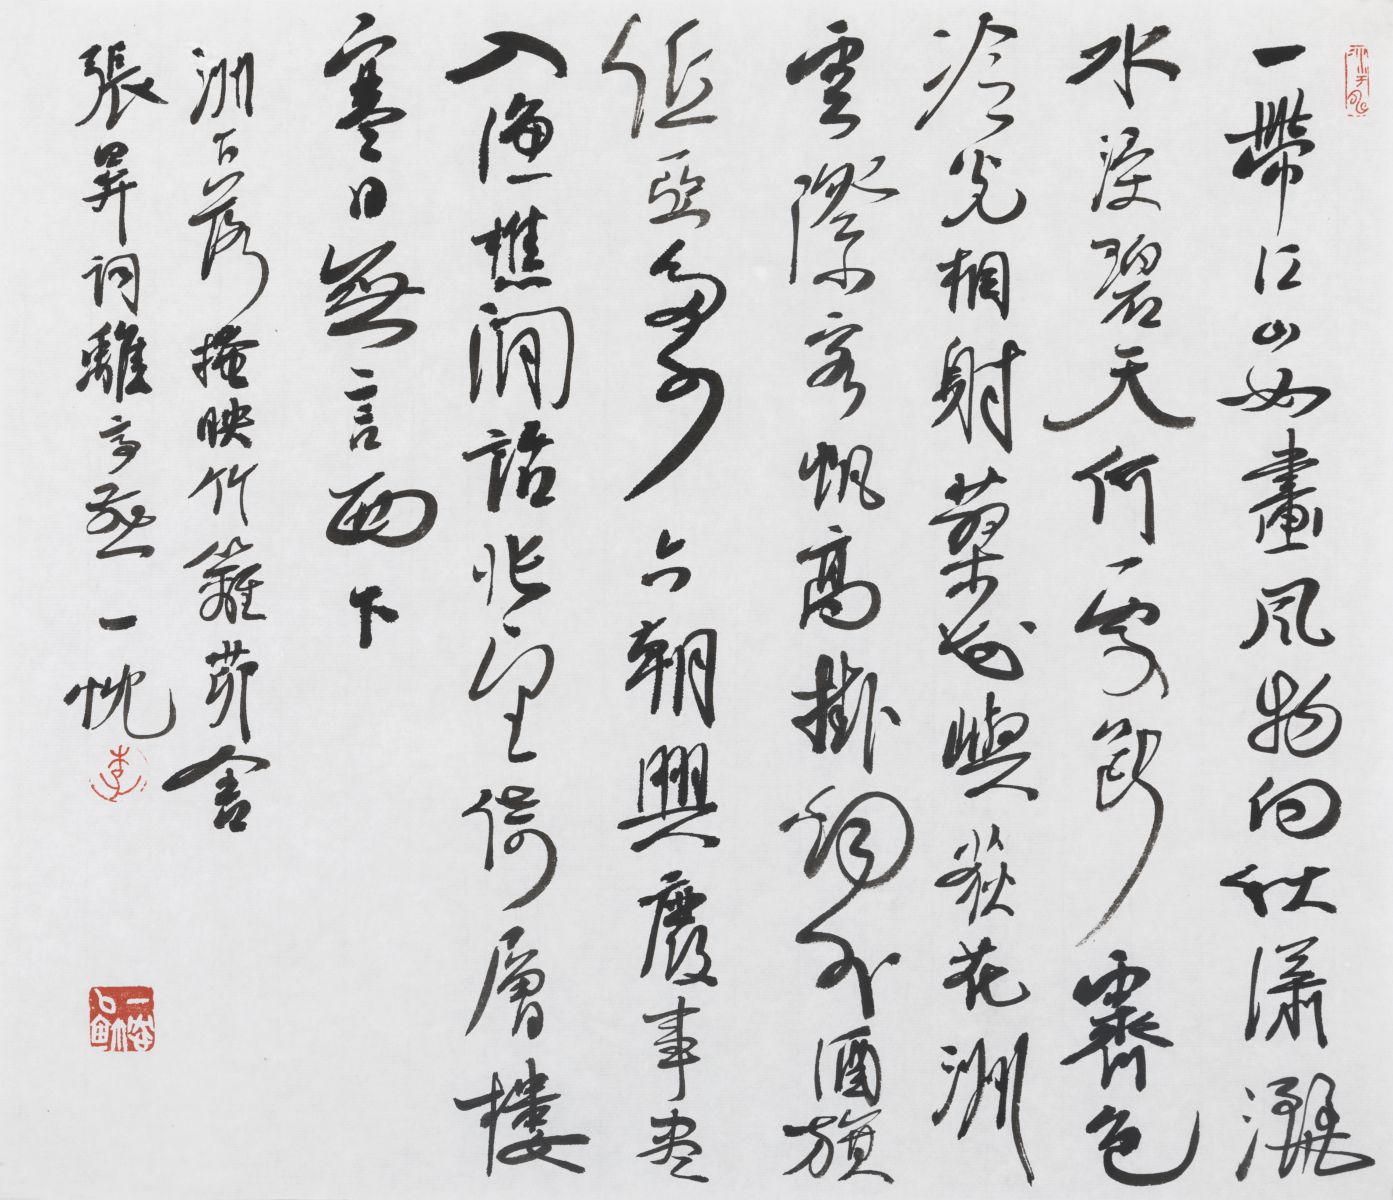 一帶江山如畫風物向秋瀟灑
水浸碧天何處斷霽色
冷光相射蓼嶼荻花洲
雲際客帆高掛烟外酒旗
低亞多少六朝興廢事尽
入漁樵閒話悵望倚層樓
寒日無言西下
洲下落掩映竹籬茅舍
張昪詞離亭燕一忱
李